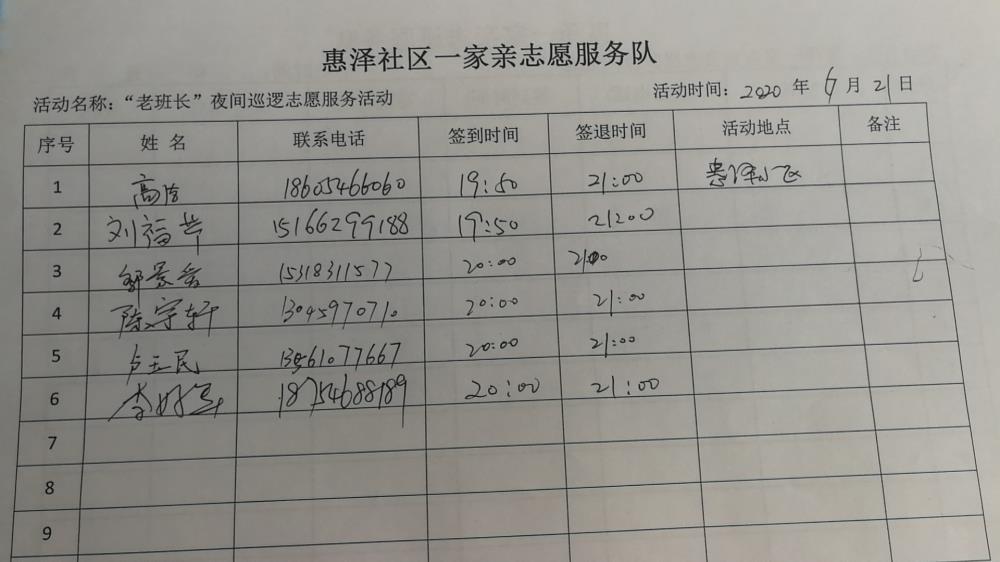 惠泽社区一家亲志愿服务队
活动名称：“老班长”夜间巡逻志愿服务活动 活动时间：2020 年 6 月 21 日
序号 姓 名 联系电话 签到时间 签退时间 活动地点 备注
1 18605466060 19:50 21:00 惠泽小区
2 刘福华 15166299188 19:50 21200
3 15318311577 20:00 2100
4 陈宇轩 13045970710 20:00 21:00
5 卢玉民 20:00 21:00
6 18754688189 20:00 21:00
7
8
9